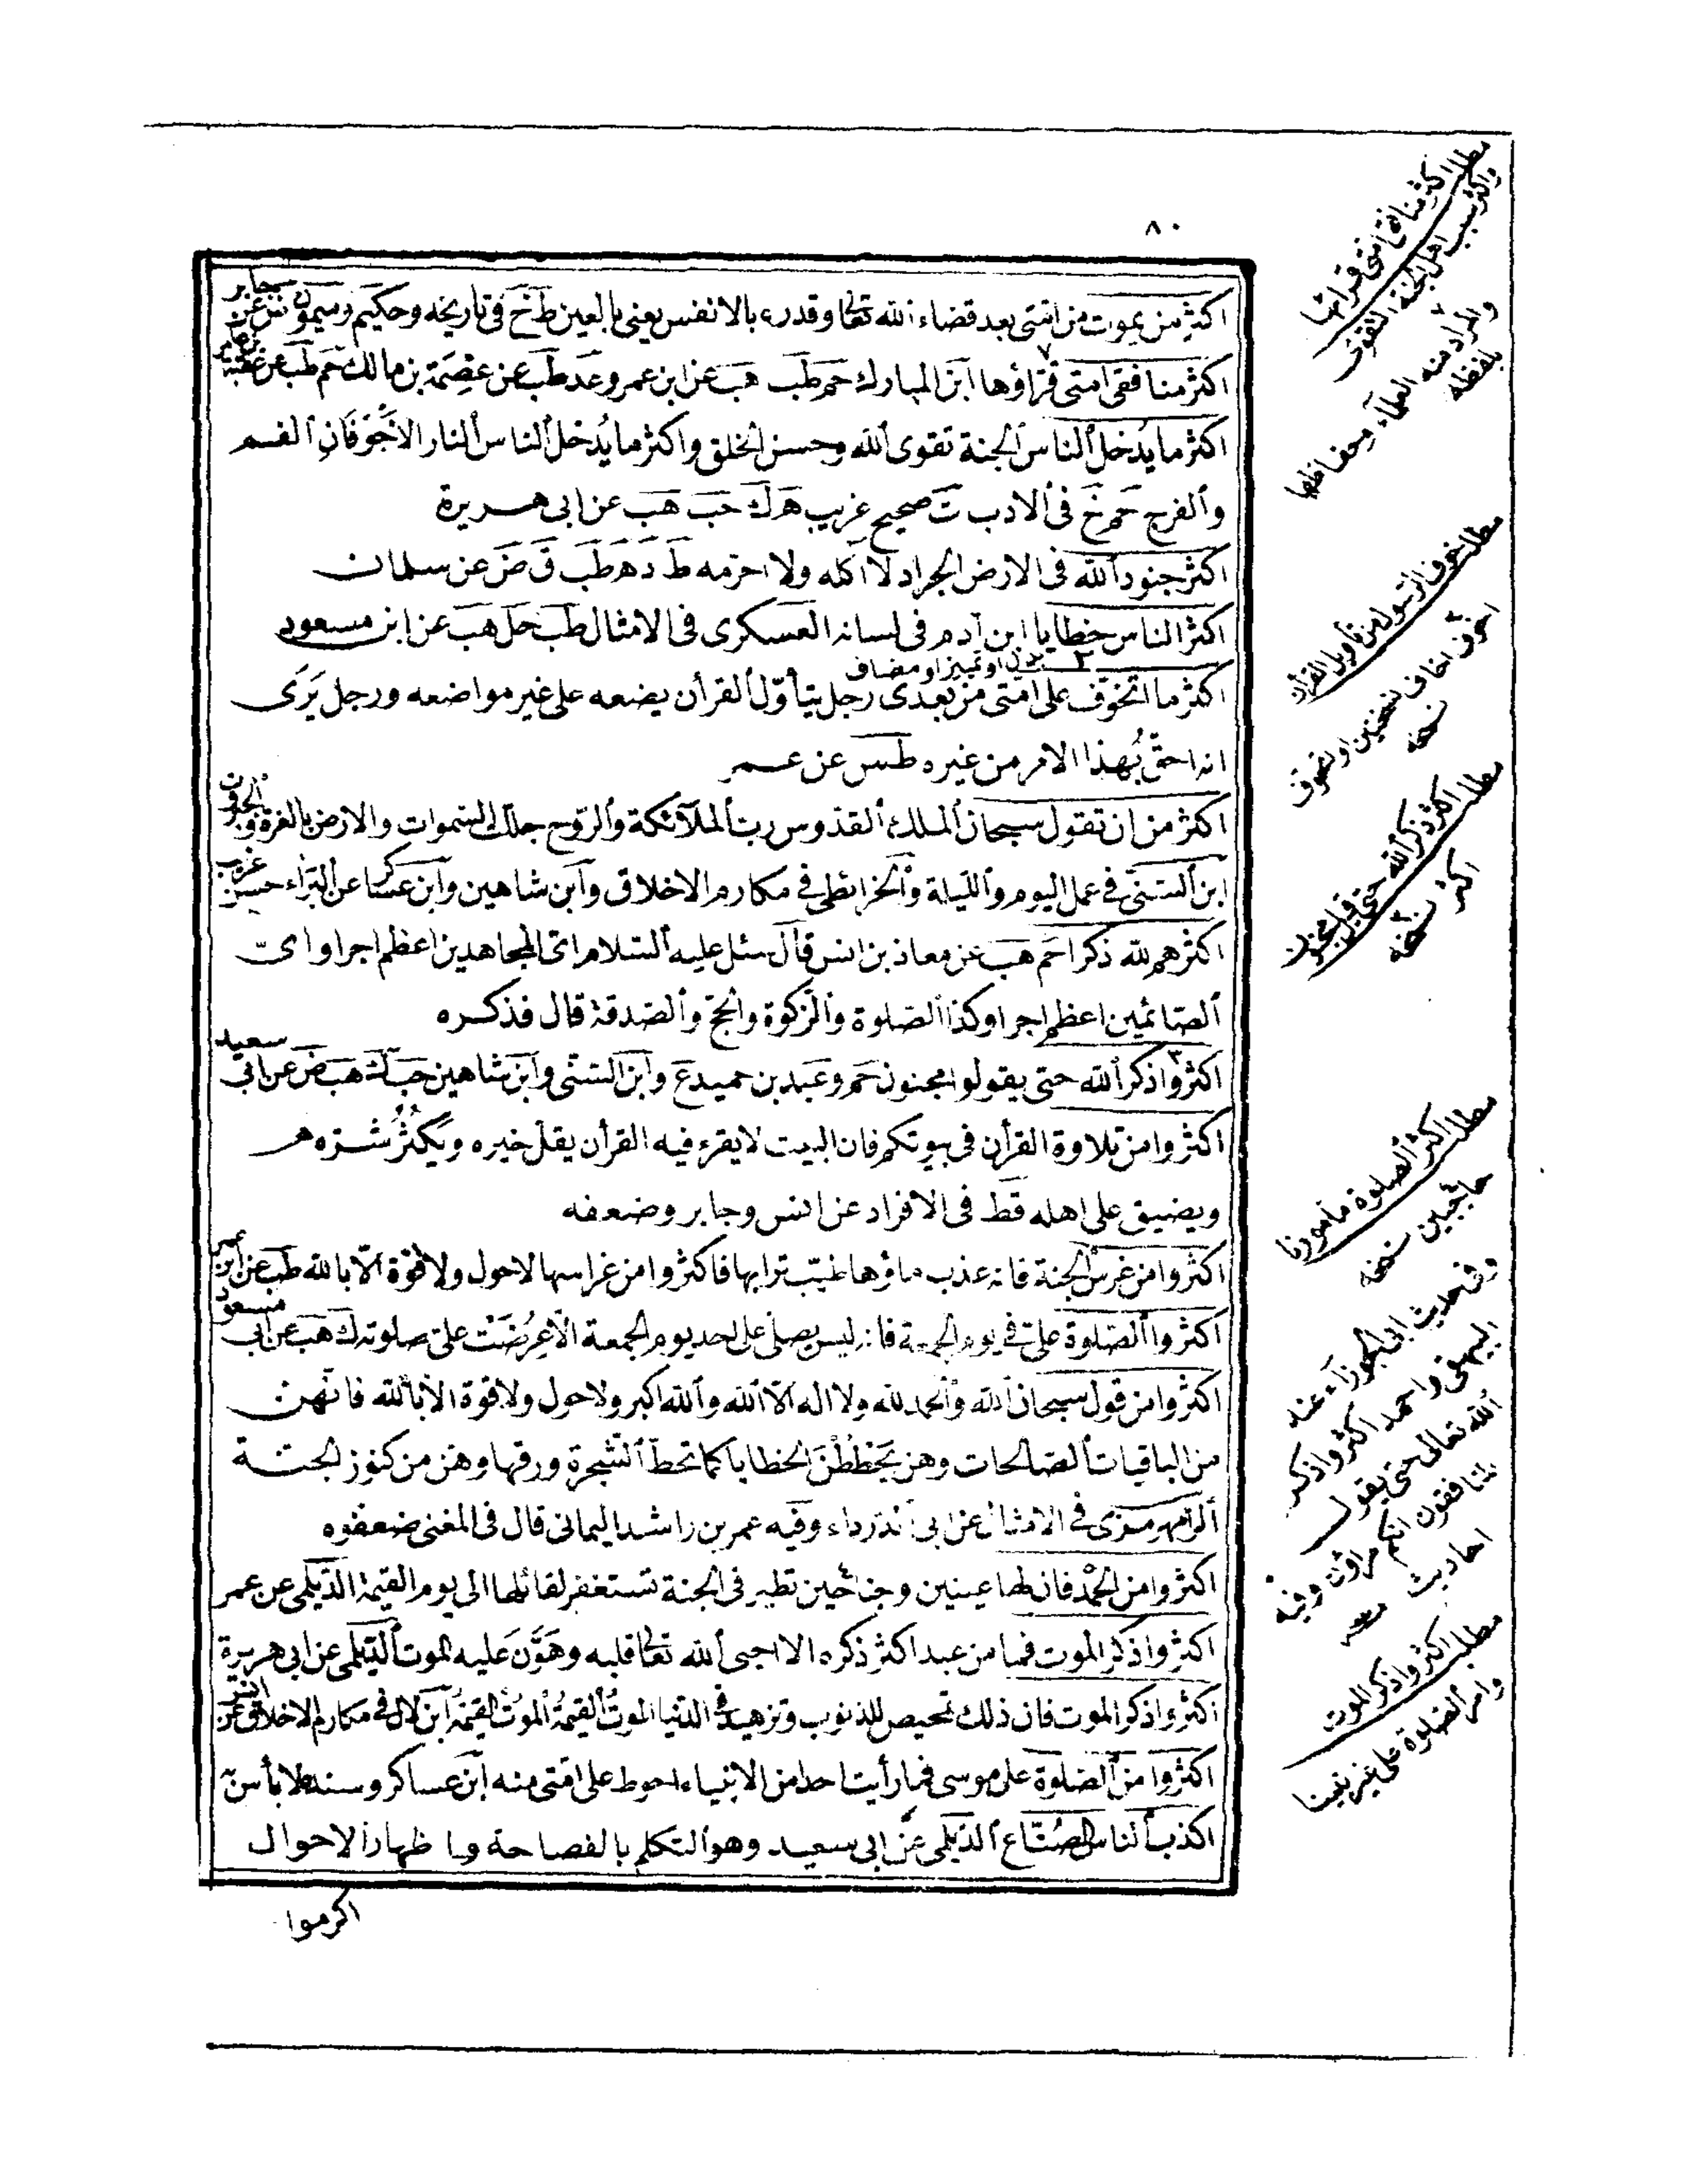 ٨٠
اكثر من يموت من امتى بعد قضاء الله تعالى وقدره بالانفس يعنى بالعين ط خ فى تاريخه وحكيم وسمويه ز ض عن جابر
اكثر منافقى امتى قراؤها ابن المبارك حم طب هب عن ابن عمرو عد طب عن عصمة بن مالك حم طب عن عقبة
اكثر ما يُدخل الناس الجنة تقوى الله وحسن الخلق واكثر ما يُدخل الناس النار الاجوفان الفم
والفرج حم خ فى الادب ت صحيح غريب ه ك حب هب عن ابى هريرة
اكثر جنود الله فى الارض الجراد لا آكله ولا احرمه ط د ه طب ق ض عن سلمان
اكثر الناس خطايا ابن آدم فى لسانه العسكرى فى الامثال طب حل هب عن ابن مسعود
بدل او تمييز او مضاف
اكثر ما اتخوّف على امتى من بعدى رجل يتأوّل القرأن يضعه على غير مواضعه ورجل يَرَى
انه احقّ بهذا الامر من غيره طس عن عمر
اكثر من ان تقول سبحان الملك القدوس رب الملآئكة والرّوح جللت السموات والارض بالعزة والجبروت
ابن السنىّ فى عمل اليوم والليلة والخرائطى فى مكارم الاخلاق وابن شاهين وابن عساكر عن البراء حسن غريب
اكثرهم لله ذكرا حم هب عن معاذ بن انس قال سئل عليه السلام اىّ المجاهدين اعظم اجرا واىّ
الصّائمين اعظم اجرا وكذا الصّلوة والزكوة والحجّ والصدقة قال فذكره
اكثروا ذكر الله حتى يقولوا مجنون حم وعبد بن حميد ع وابن السنّى وابن شاهين حب ك هب ض عن ابى سعيد
اكثروا من تلاوة القرأن فى بيوتكم فان البيت لا يقرء فيه القرأن يقلّ خيره ويَكثُرُ شرّه
ويضيق على اهله قط فى الافراد عن انس وجابر وضعفه
اكثروا من غرس الجنة فانه عذب ماؤها طيّب ترابها فاكثروا من غراسها لاحول ولا قوة الّا بالله طب عن ابن عمر
اكثروا الصّلوة علىّ فى يوم الجمعة فانه ليس يصلّى علىّ احد يوم الجمعة الّا عرُضَتْ علىّ صلوته ك هب عن ابى مسعود
اكثروا من قول سبحان الله والحمد لله ولا اله الّا الله والله اكبر ولا حول ولا قوة الّا بالله فانّهن
من الباقيات الصّالحات وهن يَحْطُطْنَ الخطايا كما تحطّ الشّجرة ورقها وهن من كنوز الجنّة
الرامهرمزى فى الامثال عن ابى الدّرداء وفيه عمر بن راشد اليمانى قال فى المغنى ضعفوه
اكثروا من الحمْد فان لها عينين وجناحين تطير فى الجنة تستغفر لقائلها الى يوم القيمة الدّيلمى عن عمر
اكثروا ذكر الموت فما من عبد اكثر ذكره الا احيى الله تعالى قلبه وهَوَّن عليه الموت الديلمى عن ابى هريرة
اكثروا ذكر الموت فان ذلك تمحيص للذنوب وتزهيد فى الدّنيا الموتُ القيمةُ الموتُ القيمةُ ابن لال فى مكارم الاخلاق عن انس
اكثروا من الصّلوة على موسى فما رأيت احدا من الانبياء احوط على امّتى منه ابن عساكر وسنده لا بأس به
اكذب الناس الصُنّاع الدّيلمى عن ابى سعيد وهو التكلم بالفصاحة وباظهار الاحوال
اكرموا
مطلب اكثر منافقى امتى قرائها
واكثر سبب اهل الجنة التقوى
والمراد منه العلماء وحفاظها
بلفظه
مطلب خوف الرسول من تأويل القرأن
اخوف اخاف نسختين او تصوف
نسخه
مطلب اكثر ذكر الله حتى قيل مجنون
اكثر نسخه
مطلب اكثر الصلوة مأمورنا
حاجبين نسخه
وفى حديث ابى الجوزاء عند
البيهقى واحمد اكثروا ذكر
الله تعالى حتى يقول
المنافقون انكم مراؤن وفيه
احاديث
مطلب اكثروا ذكر الموت
وامر الصلوة على غير نبينا